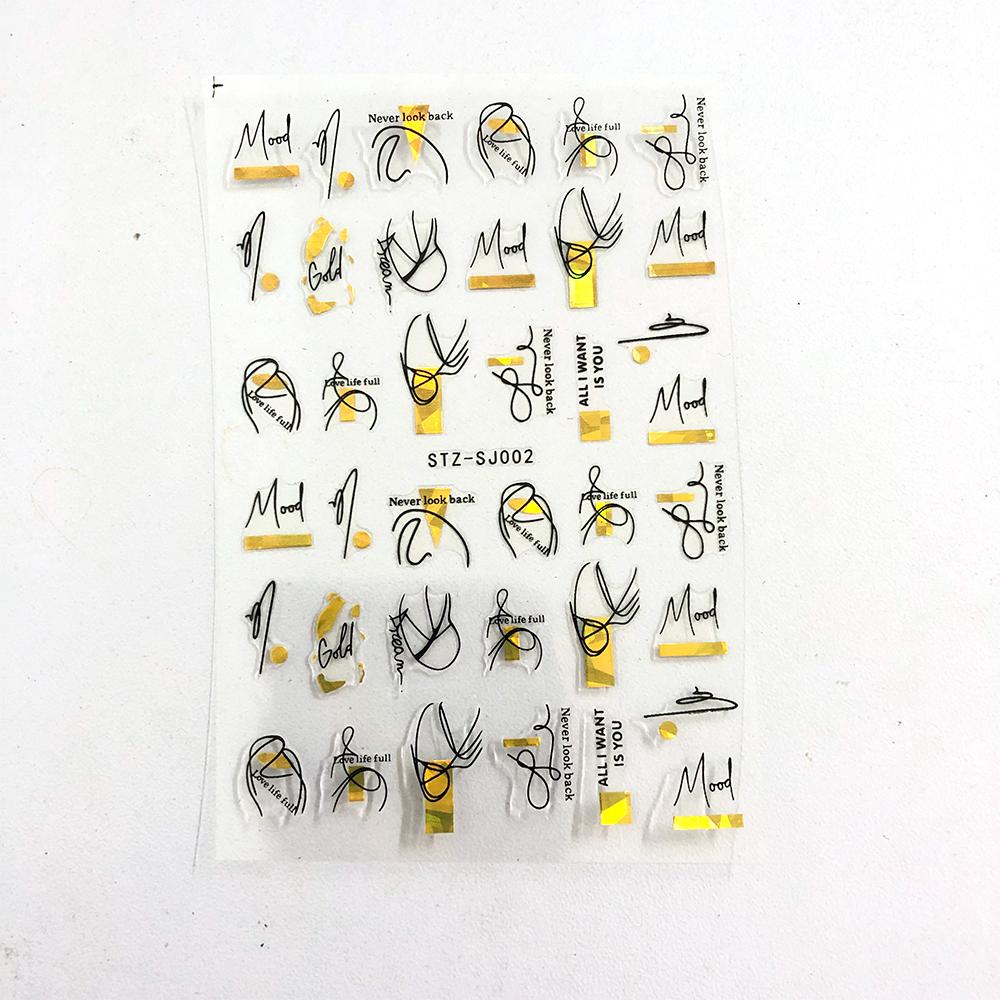 Mood
Never look back
Love life full
Love life full
Never look back
Gold
Dream
Mood
Mood
Love life full
Love life full
Never look back
ALL I WANT
IS YOU
Mood
STZ-SJ002
Mood
Never look back
Love life full
Love life full
Never look back
Gold
Dream
Love life full
Mood
Love life full
Love life full
Never look back
ALL I WANT
IS YOU
Mood